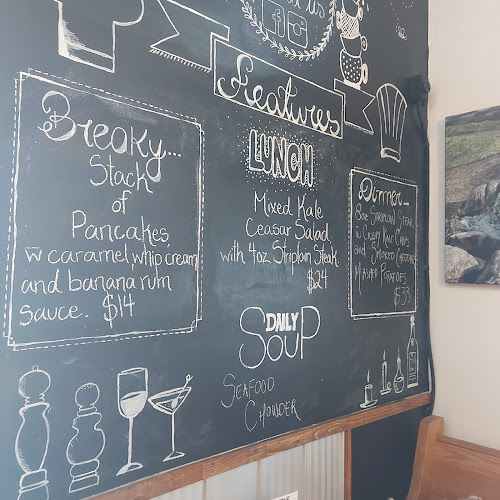 us
Features
Breaky...
Stack
of
Pancakes
w caramel, whip cream
and banana rum
sauce. $14
LUNCH
Mixed Kale
Ceasar Salad
with 4oz Striploin Steak
$24
Dinner...
8oz Striploin Steak
w Crispy Kale Chips
and Smoked Cheddar
Mashed Potatoes
$33
DAILY
Soup
Seafood
Chowder